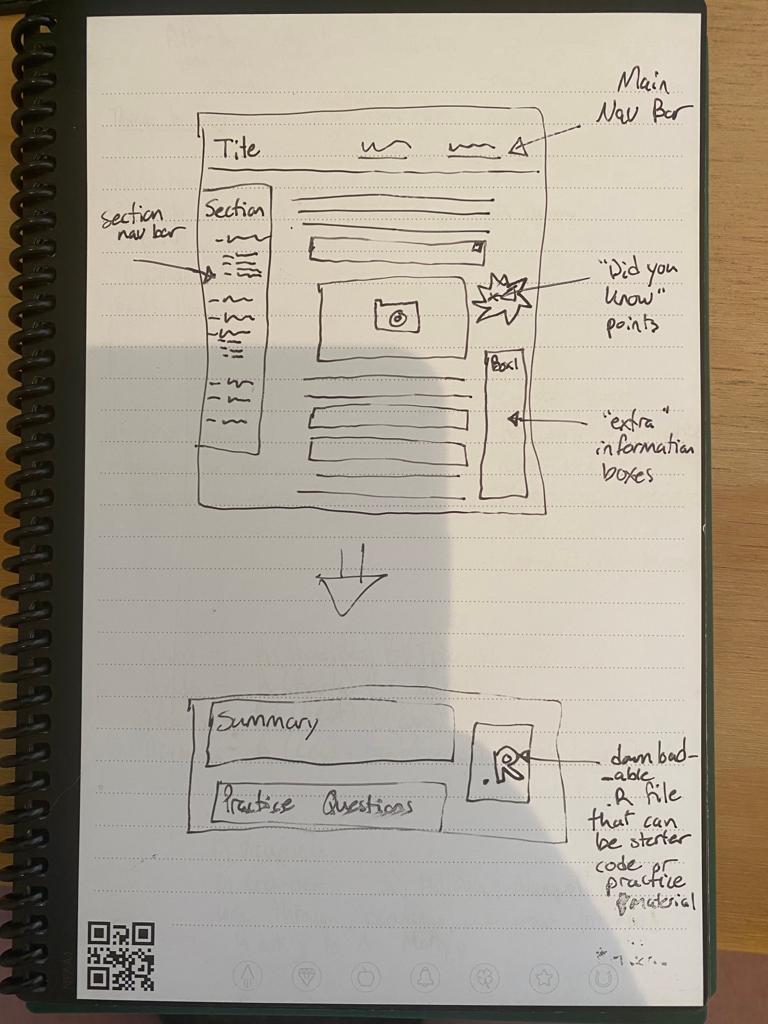 Main
Nav Bar
Tite
Section
section
nav bar
"Did you
know"
points
Box1
"extra"
information
boxes
Summary
.R
Practice Questions
downbad-
-able
.R file
that can
be starter
code or
practice
material